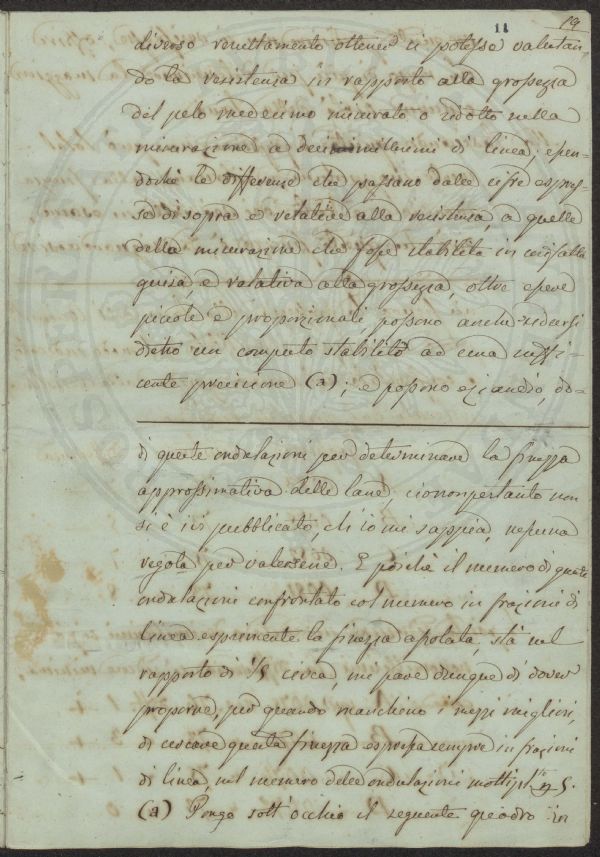 11 19
diverso renettamento ottener si potesse valutan
do la resistenza in rapporto alla grossezza
del pelo medesimo misurato o ridotto nella
misurazione a decimillesimi di linea, essen-
doche le differenze che passano dalle cifre espres-
se di sopra e relative alla resistenza, a quelle
della misurazione che fosse stabilita in cosifatta
guisa e relativa alla grossezza, oltre essere
piccole e proporzionali possono anche ridursi
dietro un computo stabilito ad una suffi-
cente precisione (a); e possono eziandio, do-
di queste ondulazioni per determinare la finezza
approssimativa delle lane ciononpertanto non
si è sin pubblicato, ch'io mi sappia, nessuna
regola per valersene. E poichè il numero di queste
ondulazioni confrontato col numero in frazioni di
linea esprimente la finezza assoluta, stà nel
rapporto di 1/5 circa, mi pare dunque di dover
proporre, per quando manchino i mezzi migliori,
di cercare questa finezza espressa sempre in frazioni
di linea, nel numero delle ondulazioni moltipl.te p 5.
(a) Pongo sott'occhio il seguente quadro in